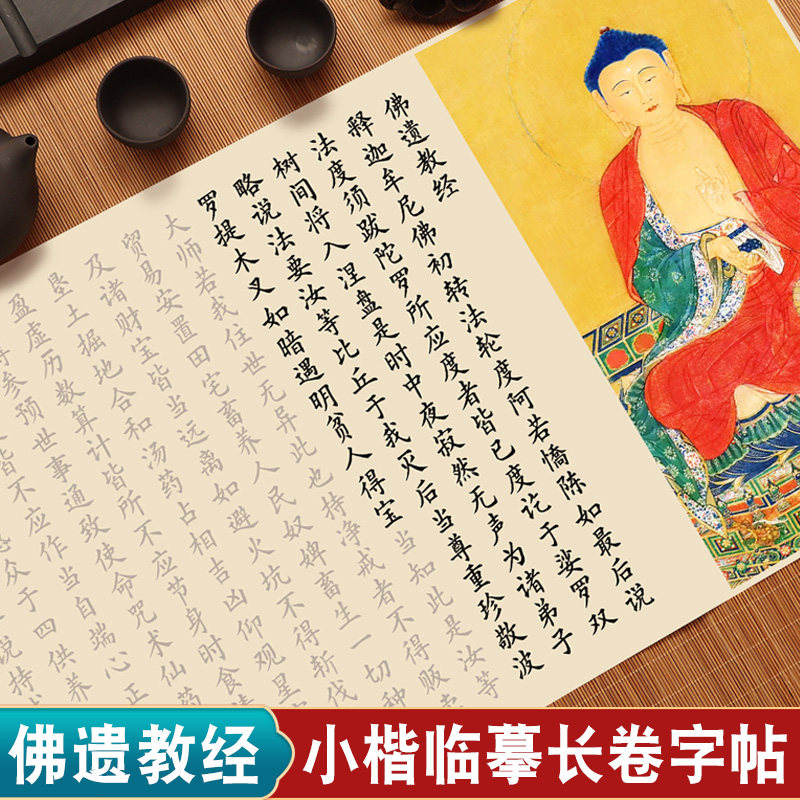 佛遗教经
释迦牟尼佛初转法轮度阿若憍陈如最后说
法度须跋陀罗所应度者皆已度讫于娑罗双
树间将入涅盘是时中夜寂然无声为诸弟子
略说法要汝等比丘于我灭后当尊重珍敬波
罗提木叉如暗遇明贫人得宝当知此是汝等
大师若我住世无异此也持净戒者不得贩
贸易安置田宅畜养人民奴婢畜生一切种
及诸财宝皆当远离如避火坑不得斩伐
垦土掘地合和汤药占相吉凶仰观星
盈虚历数算计皆所不应节身时食
参预世事通致使命咒术仙药
皆不应作当自端心正
众于四供养
说持
佛遗教经
小楷临摹长卷字帖